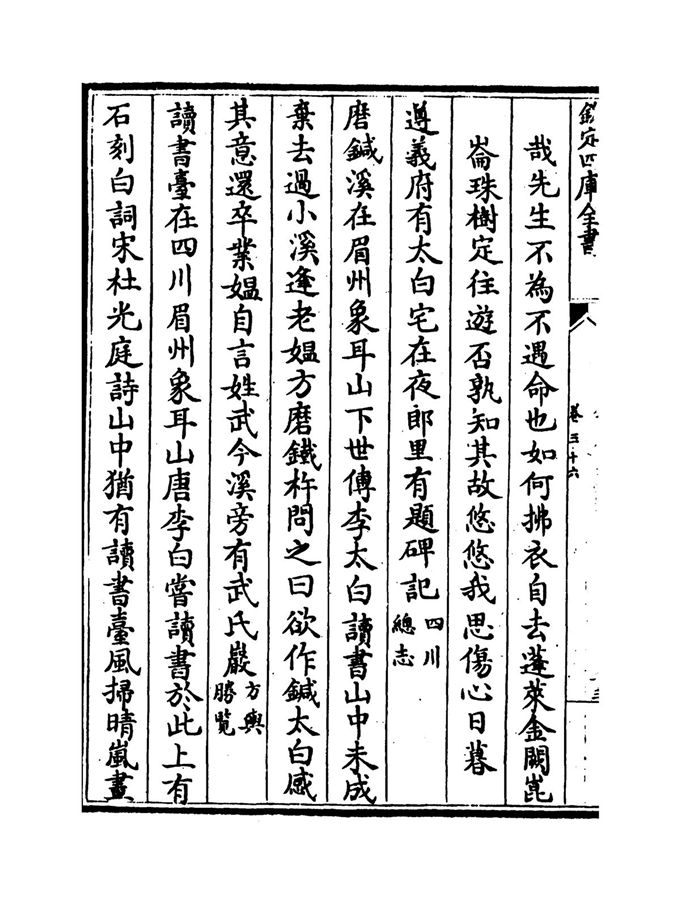 欽定四庫全書
卷三十六
哉先生不為不遇命也如何拂衣自去蓬萊金闕崑
崙珠樹定往遊否孰知其故悠悠我思傷心日暮
遵義府有太白宅在夜郎里有題碑記四川總志
磨鍼溪在眉州象耳山下世傳李太白讀書山中未成
棄去過小溪逢老媼方磨鐵杵問之曰欲作鍼太白感
其意還卒業媼自言姓武今溪旁有武氏巖方輿勝覽
讀書臺在四川眉州象耳山唐李白嘗讀書於此上有
石刻白詞宋杜光庭詩山中猶有讀書臺風掃晴嵐畫